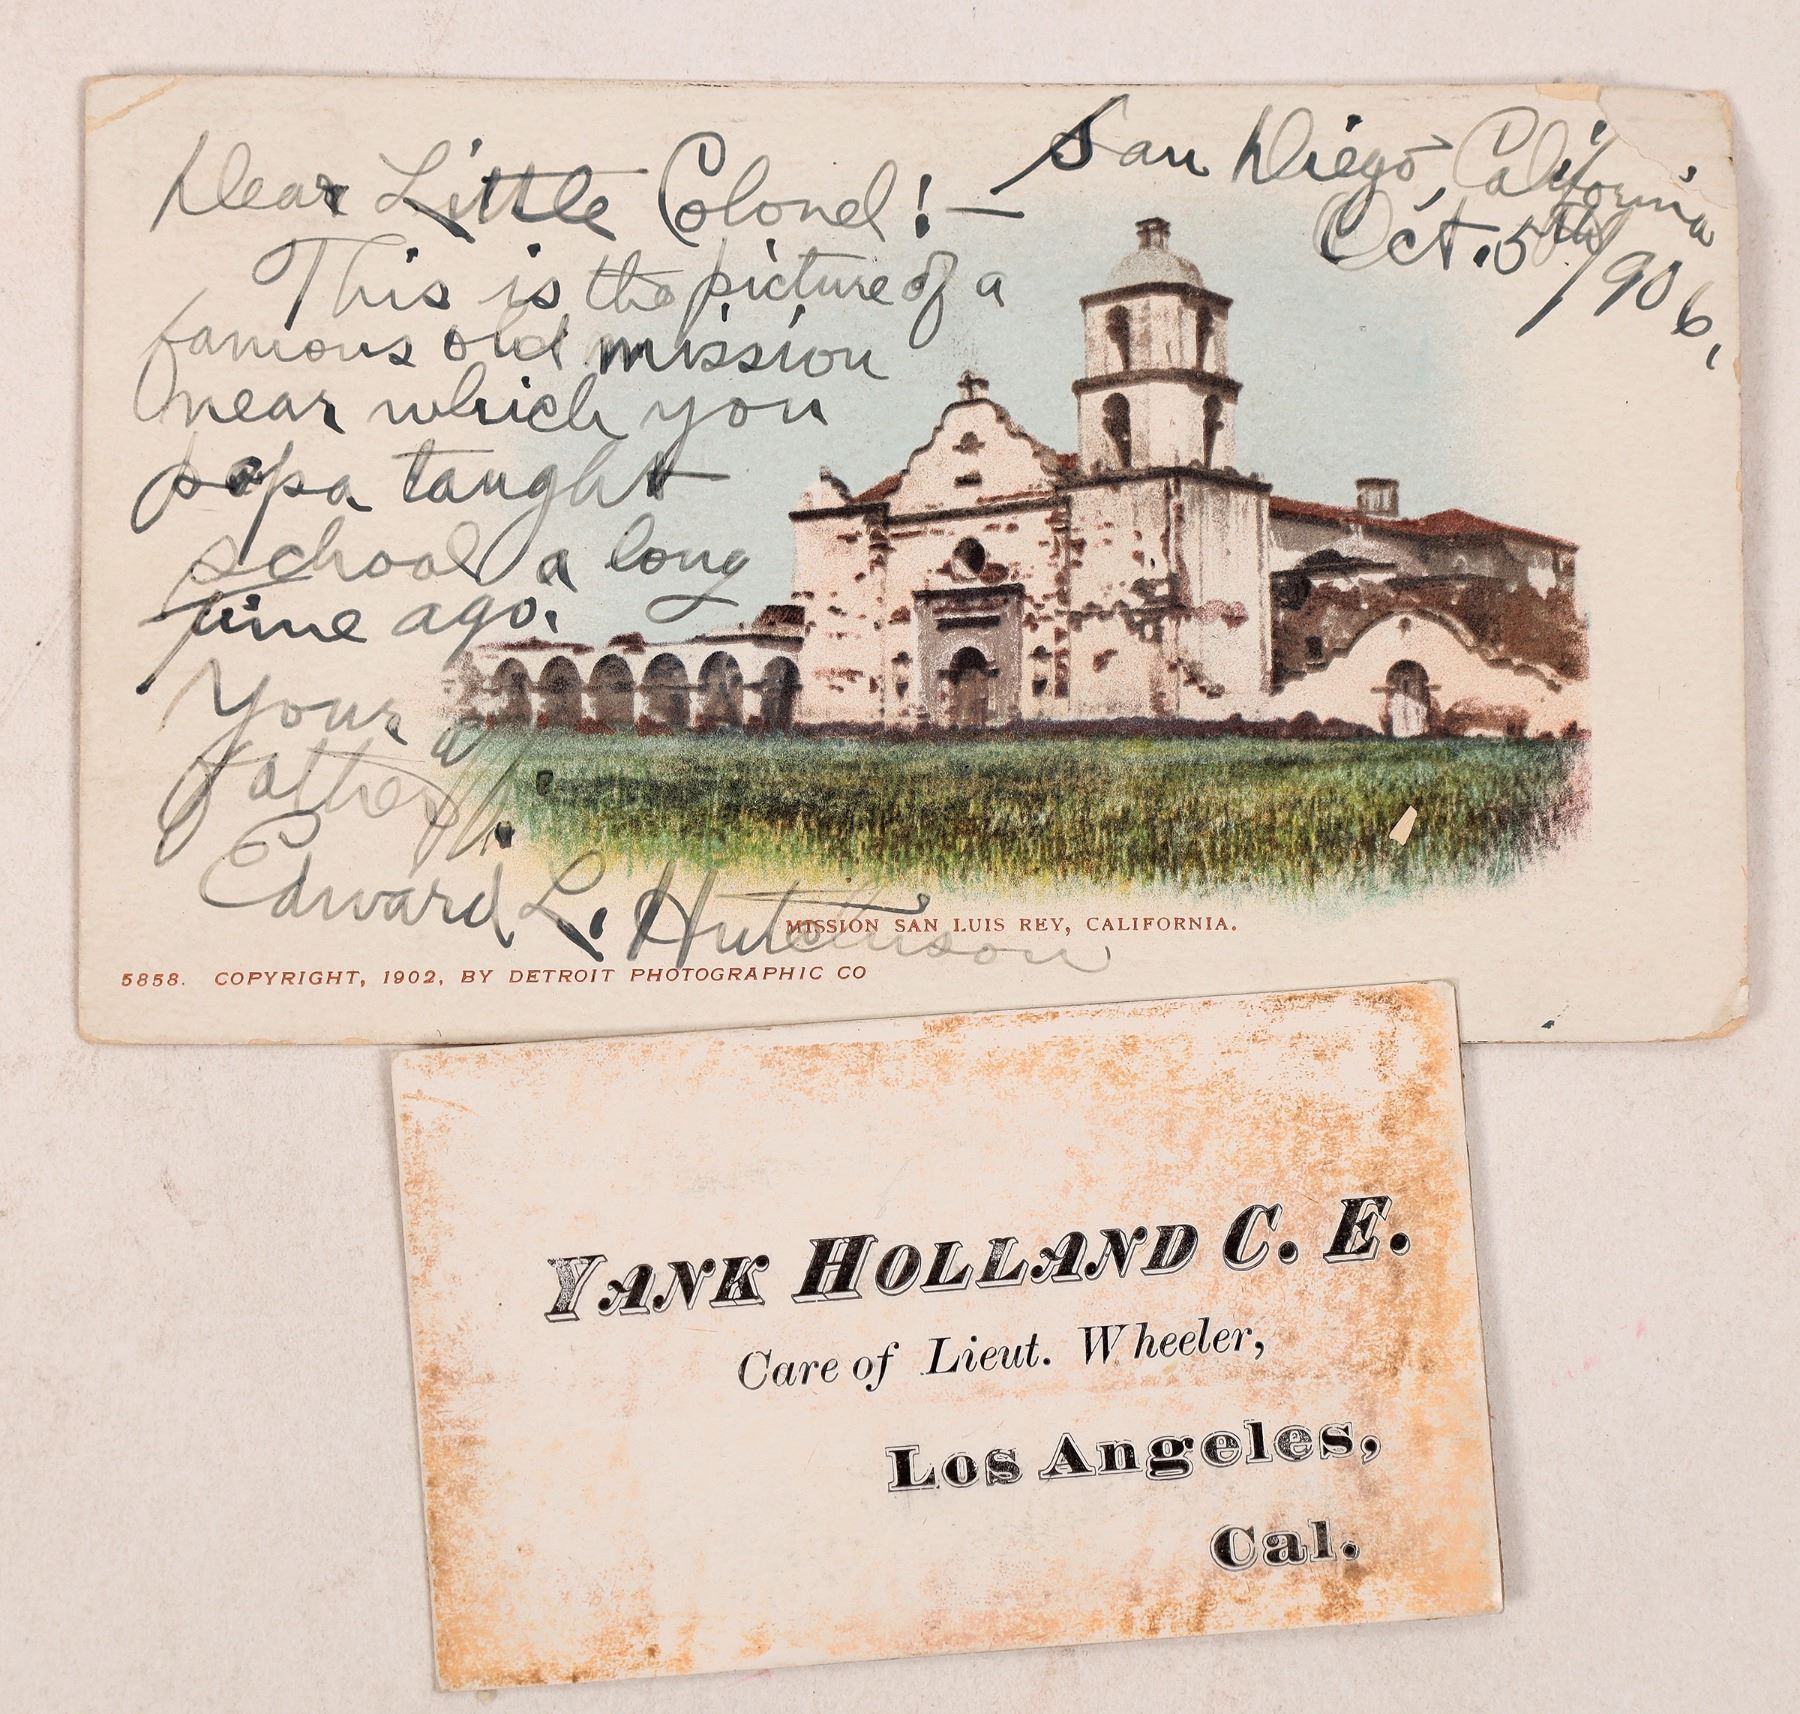 San Diego, California
Oct. 5th/1906.
Dear Little Colonel! —
This is the picture of a
famous old mission
near which you
papa taught
school a long
time ago.
Your
Father,
Edward L. Hutchinson
MISSION SAN LUIS REY, CALIFORNIA.
5858. COPYRIGHT, 1902, BY DETROIT PHOTOGRAPHIC CO
YANK HOLLAND C. E.
Care of Lieut. Wheeler,
Los Angeles,
Cal.